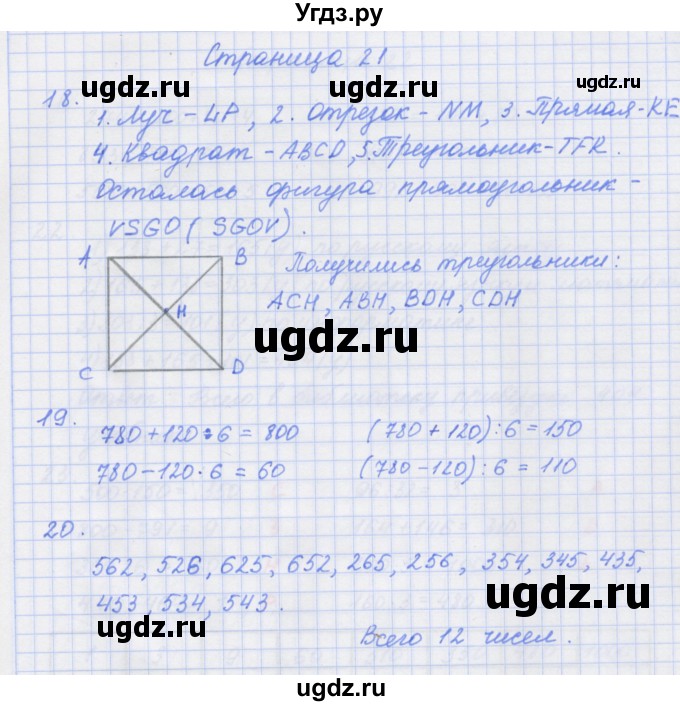 Угдз.ру
Страница 21
ugdz.ru ugdz.ru ugdz.ru
18.
1. Луч - LP, 2. Отрезок - NM, 3. Прямая - KE
4. Квадрат - ABCD, 5. Треугольник - TFR.
Осталась фигура прямоугольник -
VSGO (SGOV).
A B
Получились треугольники:
ACH, ABH, BDH, CDH
H
ugdz.ru
C D
19.
780+120:6=800 (780+120):6=150
780-120·6=60 (780-120):6=110
20.
562, 526, 625, 652, 265, 256, 354, 345, 435,
ugdz.ru
453, 534, 543.
ugdz.ru
Всего 12 чисел.
ugdz.ru
ugdz.ru